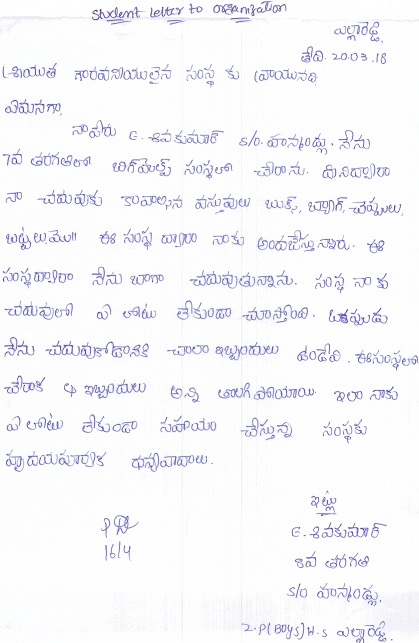 Student Letter to organization
ఎల్లారెడ్డి,
తేది. 20.03.18
శ్రీయుత గౌరవనీయులైన సంస్థ కు వ్రాయునది
ఏమనగా,
నాపేరు G. శివకుమార్ S/o. హన్మాండ్లు. నేను
7వ తరగతిలో బిగ్‌హెల్ప్ సంస్థలో చేరాను. దీనిద్వారా
నా చదువుకు కావాల్సిన వస్తువులు బుక్స్, బ్యాగ్, చెప్పులు,
బట్టలు,మొ॥ ఈ సంస్థ ద్వారా నాకు అందజేస్తున్నారు. ఈ
సంస్థద్వారా నేను బాగా చదువుతున్నాను. సంస్థ నాకు
చదువులో ఏ లోటు లేకుండా చూస్తోంది. ఒకప్పుడు
నేను చదువుకోడానికి చాలా ఇబ్బందులు ఉండేవి. ఈసంస్థలో
చేరాక ఆ ఇబ్బందులు అన్ని తొలగి పోయాయి. ఇలా నాకు
ఏ లోటు లేకుండా సహాయం చేస్తున్న సంస్థకు
హృదయపూర్వక ధన్యవాదాలు.
ఇట్లు
G. శివకుమార్
8వ తరగతి
S/o హన్మాండ్లు.
Z.P(Boys)H.S ఎల్లారెడ్డి.
16/4